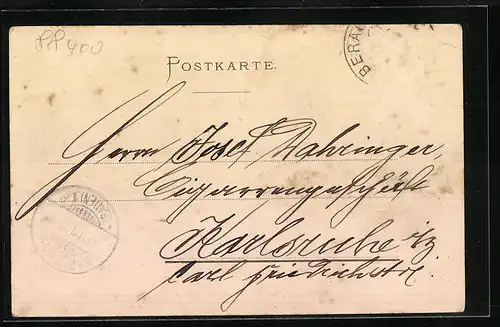 PP400
POSTKARTE.
BERA
Herrn Josef Dahringer,
Cigarrengeschäft
Karlsruhe i/B
Carl Friedrichstr.